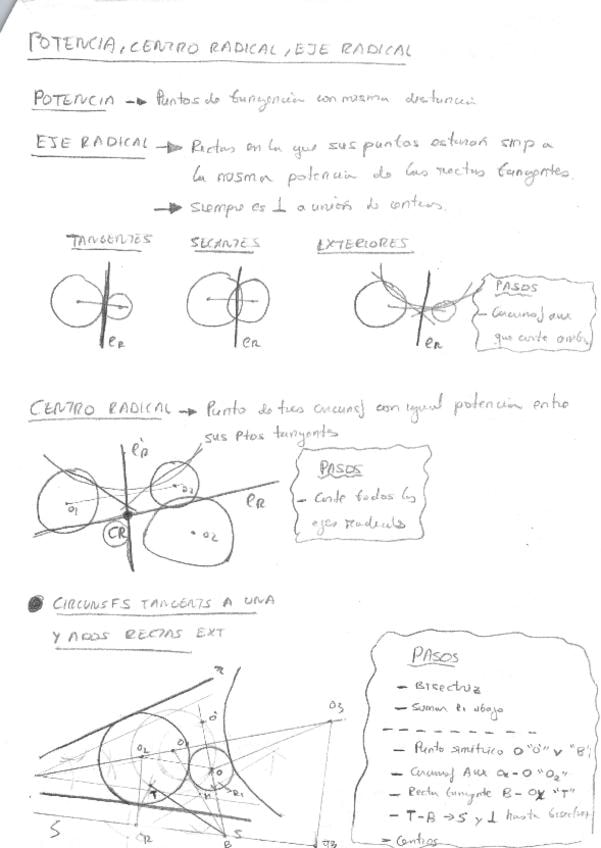 POTENCIA, CENTRO RADICAL, EJE RADICAL
POTENCIA → Puntos de tangencia con misma distancia
EJE RADICAL → Rectas en la que sus puntos estaran smp a
la misma potencia de las rectas tangentes.
→ Siempre es ⊥ a union de centros.
TANGENTES SECANTES EXTERIORES
PASOS
- Circunsf aux
que corte ambas
eR eR eR
CENTRO RADICAL → Punto de tres circunsf con igual potencia entre
sus Ptos tangents
e'R
PASOS
- Corte todos los
ejes radicals
eR
O1
O2
CR
CIRCUNSFS TANGENTS A UNA
Y A DOS RECTAS EXT
PASOS
- Bisectriz
- Sumar R1 abajo
- Punto simétrico O "O'" y "B"
- Circunsf Aux
- Recta tangente
- T-B → S y ⊥ hasta bisectriz
- Centros
R
O'
O3
O2
O
T
R1
S
CR
B
S